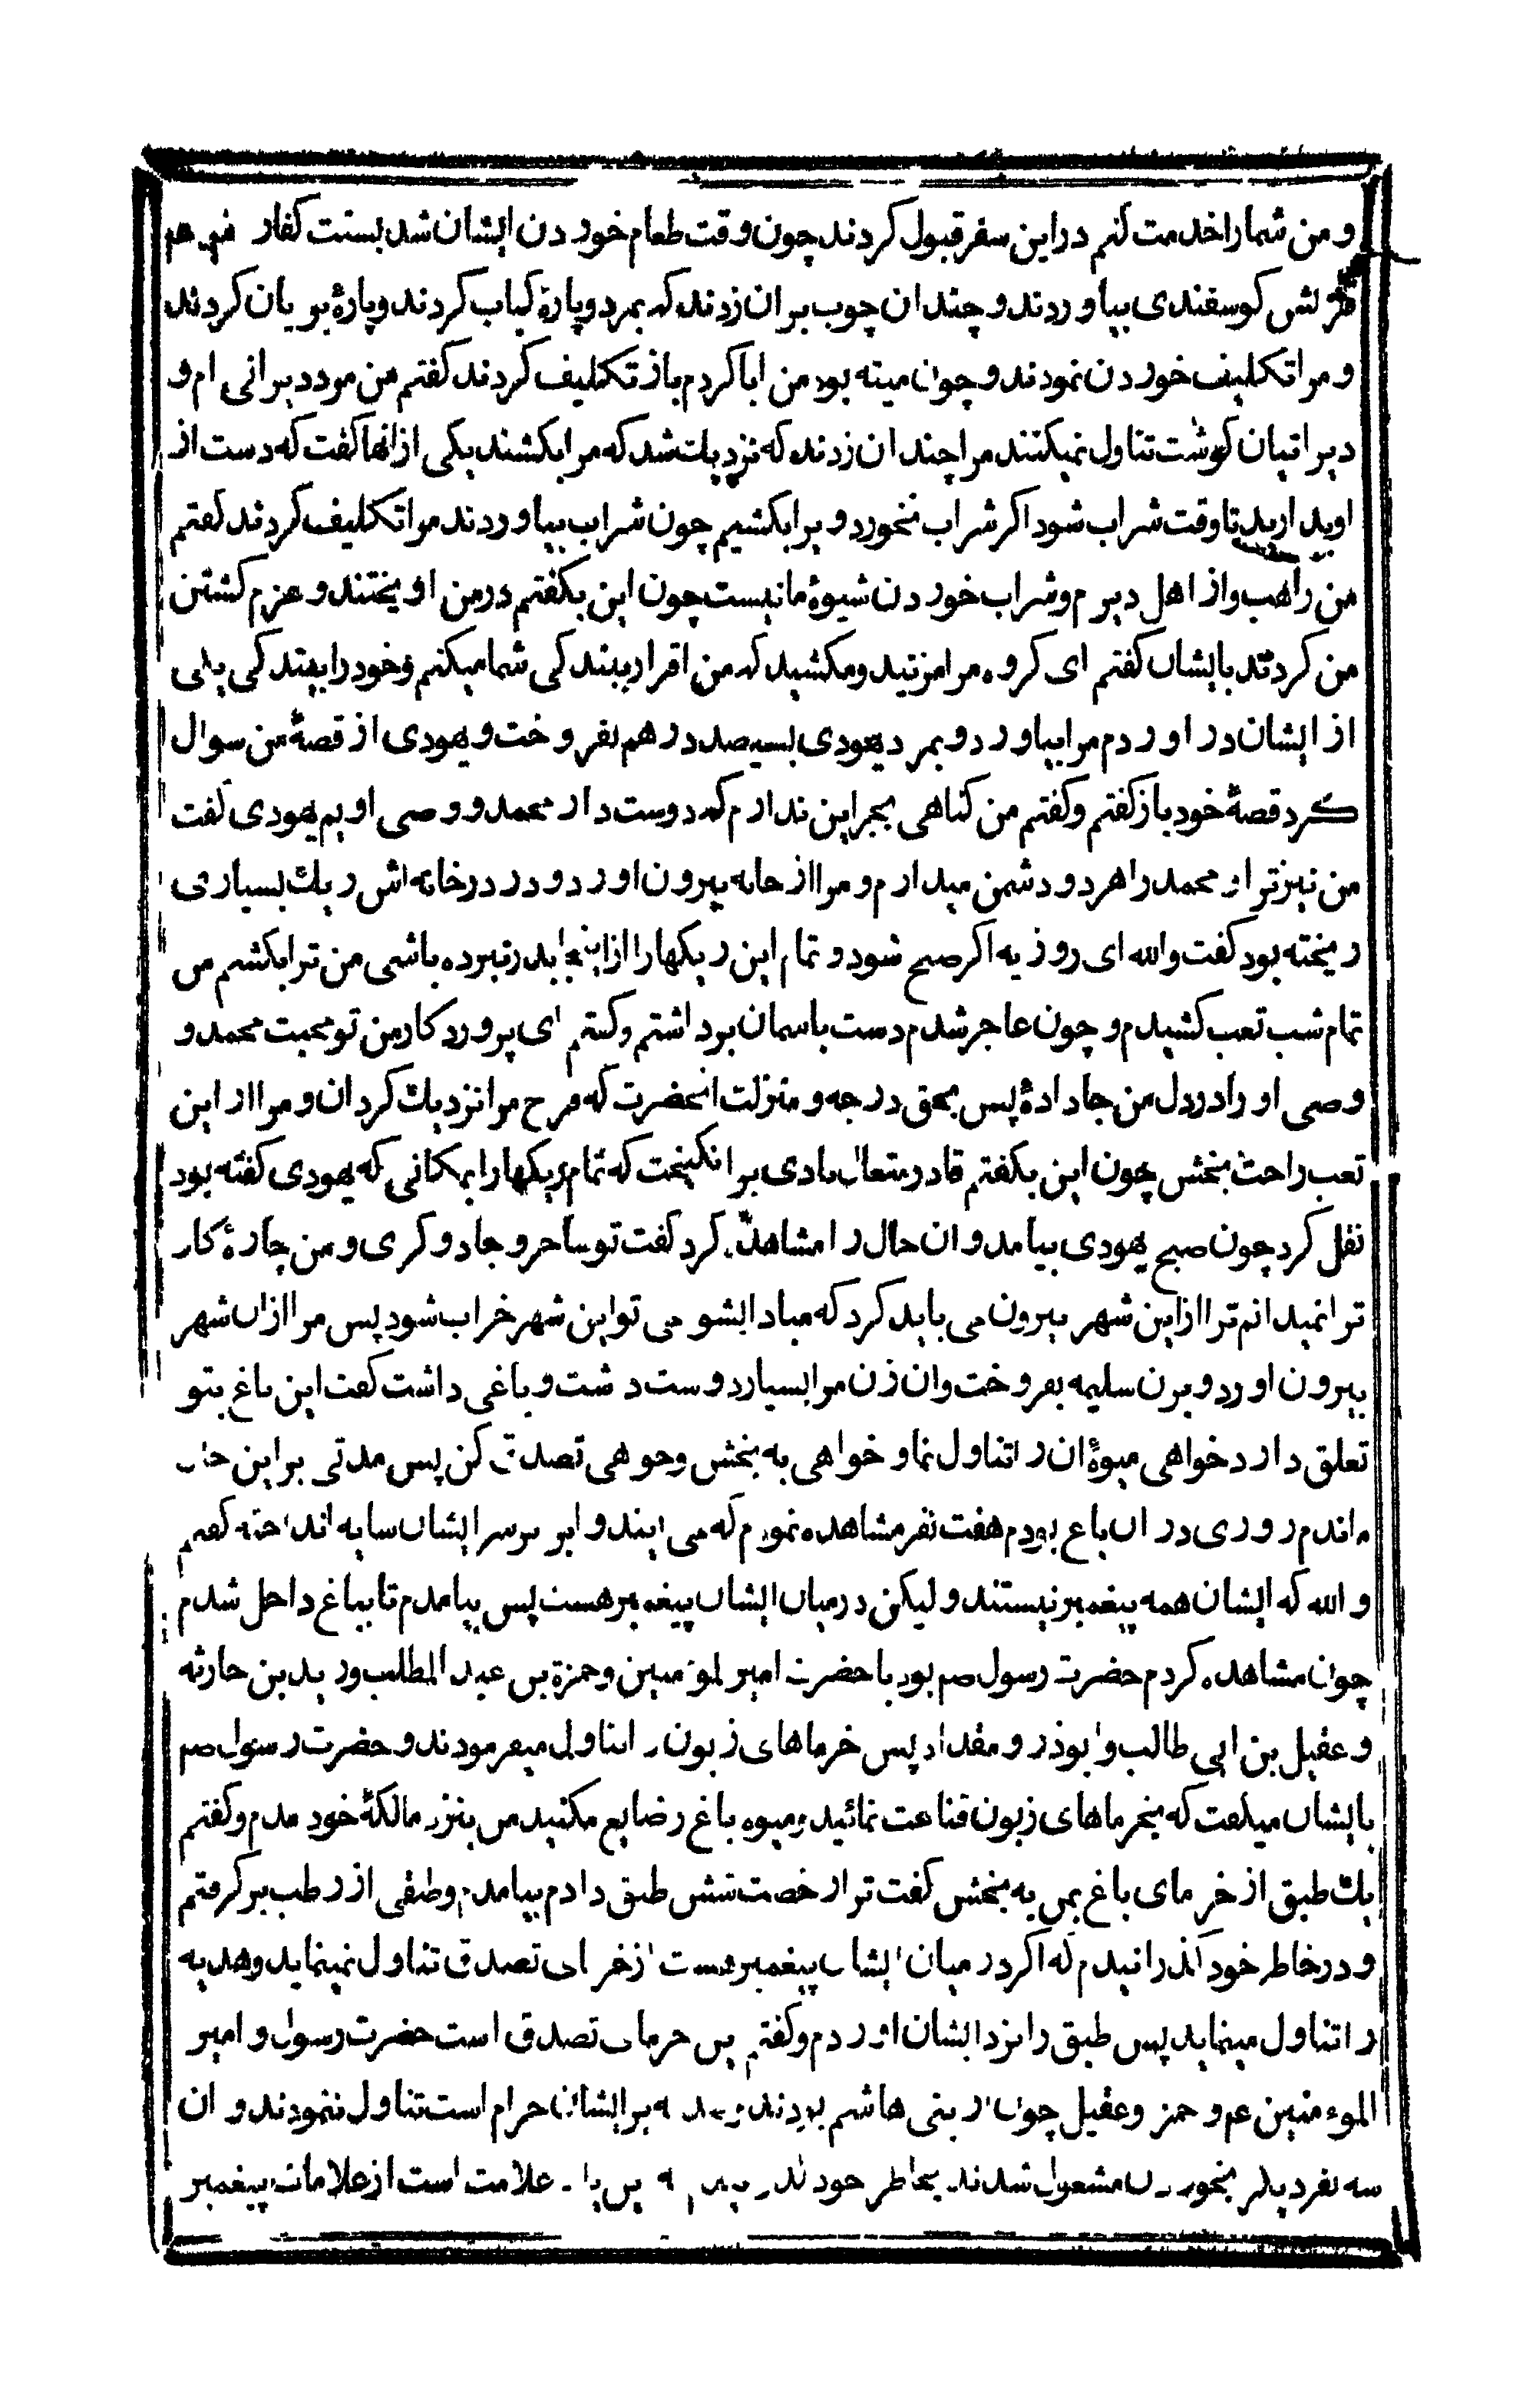 و من شما را خدمت کنم در این سفر قبول کردند چون وقت طعام خوردن ایشان شد بسنت کفار
قریش کوسفندی بیاوردند و چندان چوب بران زدند که بمرد و پارۀ کباب کردند و پارۀ بریان کردند
و مرا تکلیف خوردن نمودند و چون میته بود من ابا کردم باز تکلیف کردند کفتم من مرد دیرانی ام و
دیرانیان کوشت تناول نمیکنند مرا چندان زدند که نزدیك شد که مرا بکشند یکی از انها کفت که دست از
او بدارید تا وقت شراب شود اکر شراب نخورد ویرا بکشیم چون شراب بیاوردند مرا تکلیف کردند کفتم
من راهب و از اهل دیرم و شراب خوردن شیوۀ ما نیست چون این بکفتم در من اویختند و عزم کشتن
من کردند بایشان کفتم ای کروه مرا مزنید و مکشید که من اقرار ببندکی شما میکنم و خود را ببندکی یکی
از ایشان در اوردم مرا بیاورد و بمرد یهودی بسیصد درهم بفروخت و یهودی از قصۀ من سوال
کرد قصۀ خود باز کفتم و کفتم من کناهی بجز این ندارم که دوست دار محمد و وصی اویم یهودی کفت
من نیز ترا و محمد را هر دو دشمن میدارم و مرا از خانه بیرون اورد و در درخانه اش ریك بسیاری
ریخته بود کفت والله ای روزبه اکر صبح شود و تمام این ریکها را از اینجا بدر نبرده باشی من ترا بکشم من
تمام شب تعب کشیدم و چون عاجز شدم دست باسمان برداشتم و کفتم ای پروردکار من تو محبت محمد و
وصی او را در دل من جا دادۀ پس بحق درجه و منزلت انحضرت که فرح مرا نزدیك کردان و مرا از این
تعب راحت بخش چون این بکفتم قادر متعال بادی برانکیخت که تمام ریکها را بمکانی که یهودی کفته بود
نقل کرد چون صبح یهودی بیامد و ان حال را مشاهده کرد کفت تو ساحر و جادوکری و من چارۀ کار
ترا نمیدانم ترا از این شهر بیرون می باید کرد که مبادا بشومی تو این شهر خراب شود پس مرا از ان شهر
بیرون اورد و بزن سلیمه بفروخت و ان زن مرا بسیار دوست داشت و باغی داشت کفت این باغ بتو
تعلق دارد خواهی میوۀ ان را تناول نما و خواهی به بخش و خواهی تصدق کن پس مدتی براین حال
ماندم روزی در ان باغ بودم هفت نفر مشاهده نمودم که می ایند و ابر بر سر ایشان سایه انداخته کفتم
والله که ایشان همه پیغمبر نیستند ولیکن در میان ایشان پیغمبر هست پس بیامدم تا بباغ داخل شدم
چون مشاهده کردم حضرت رسول صم بود با حضرت امیر المومنین و حمزة بن عبد المطلب و زید بن حارثه
و عقیل بن ابی طالب و ابوذر و مقداد پس خرماهای زبون را تناول میفرمودند و حضرت رسول صم
بایشان میکفت که بخرماهای زبون قناعت نمائید و میوه باغ را ضایع مکنید من بنزد مالکۀ خود امدم و کفتم
یك طبق از خرمای باغ بمن به بخش کفت ترا رخصت شش طبق دادم بیامدم و طبقی از رطب برکرفتم
و در خاطر خود کذرانیدم که اکر در میان ایشان پیغمبر هست از خرمای تصدق تناول نمینماید و هدیه
را تناول مینماید پس طبق را نزد ایشان اوردم و کفتم این خرمای تصدق است حضرت رسول و امیر
الموءمنین عم و حمزه و عقیل چون از بنی هاشم بودند و صدقه بر ایشان حرام است تناول ننمودند و ان
سه نفر دیکر بخوردن مشغول شدند بخاطر خود کذرانیدم که این یك علامت است از علامات پیغمبر